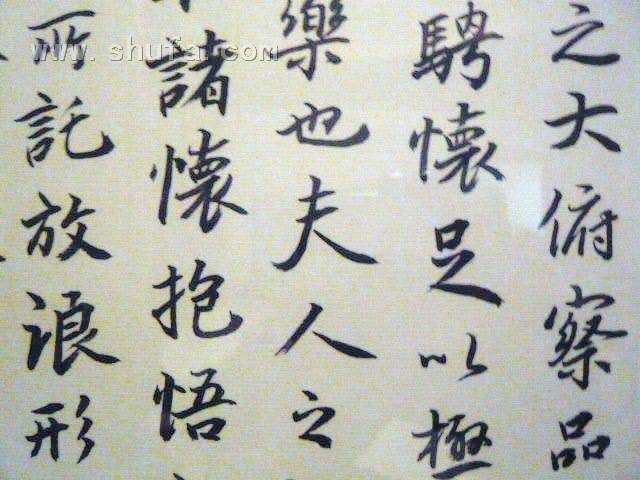 之大俯察品
騁懷足以極
樂也夫人之
諸懷抱悟
所託放浪形
www.shufa.com